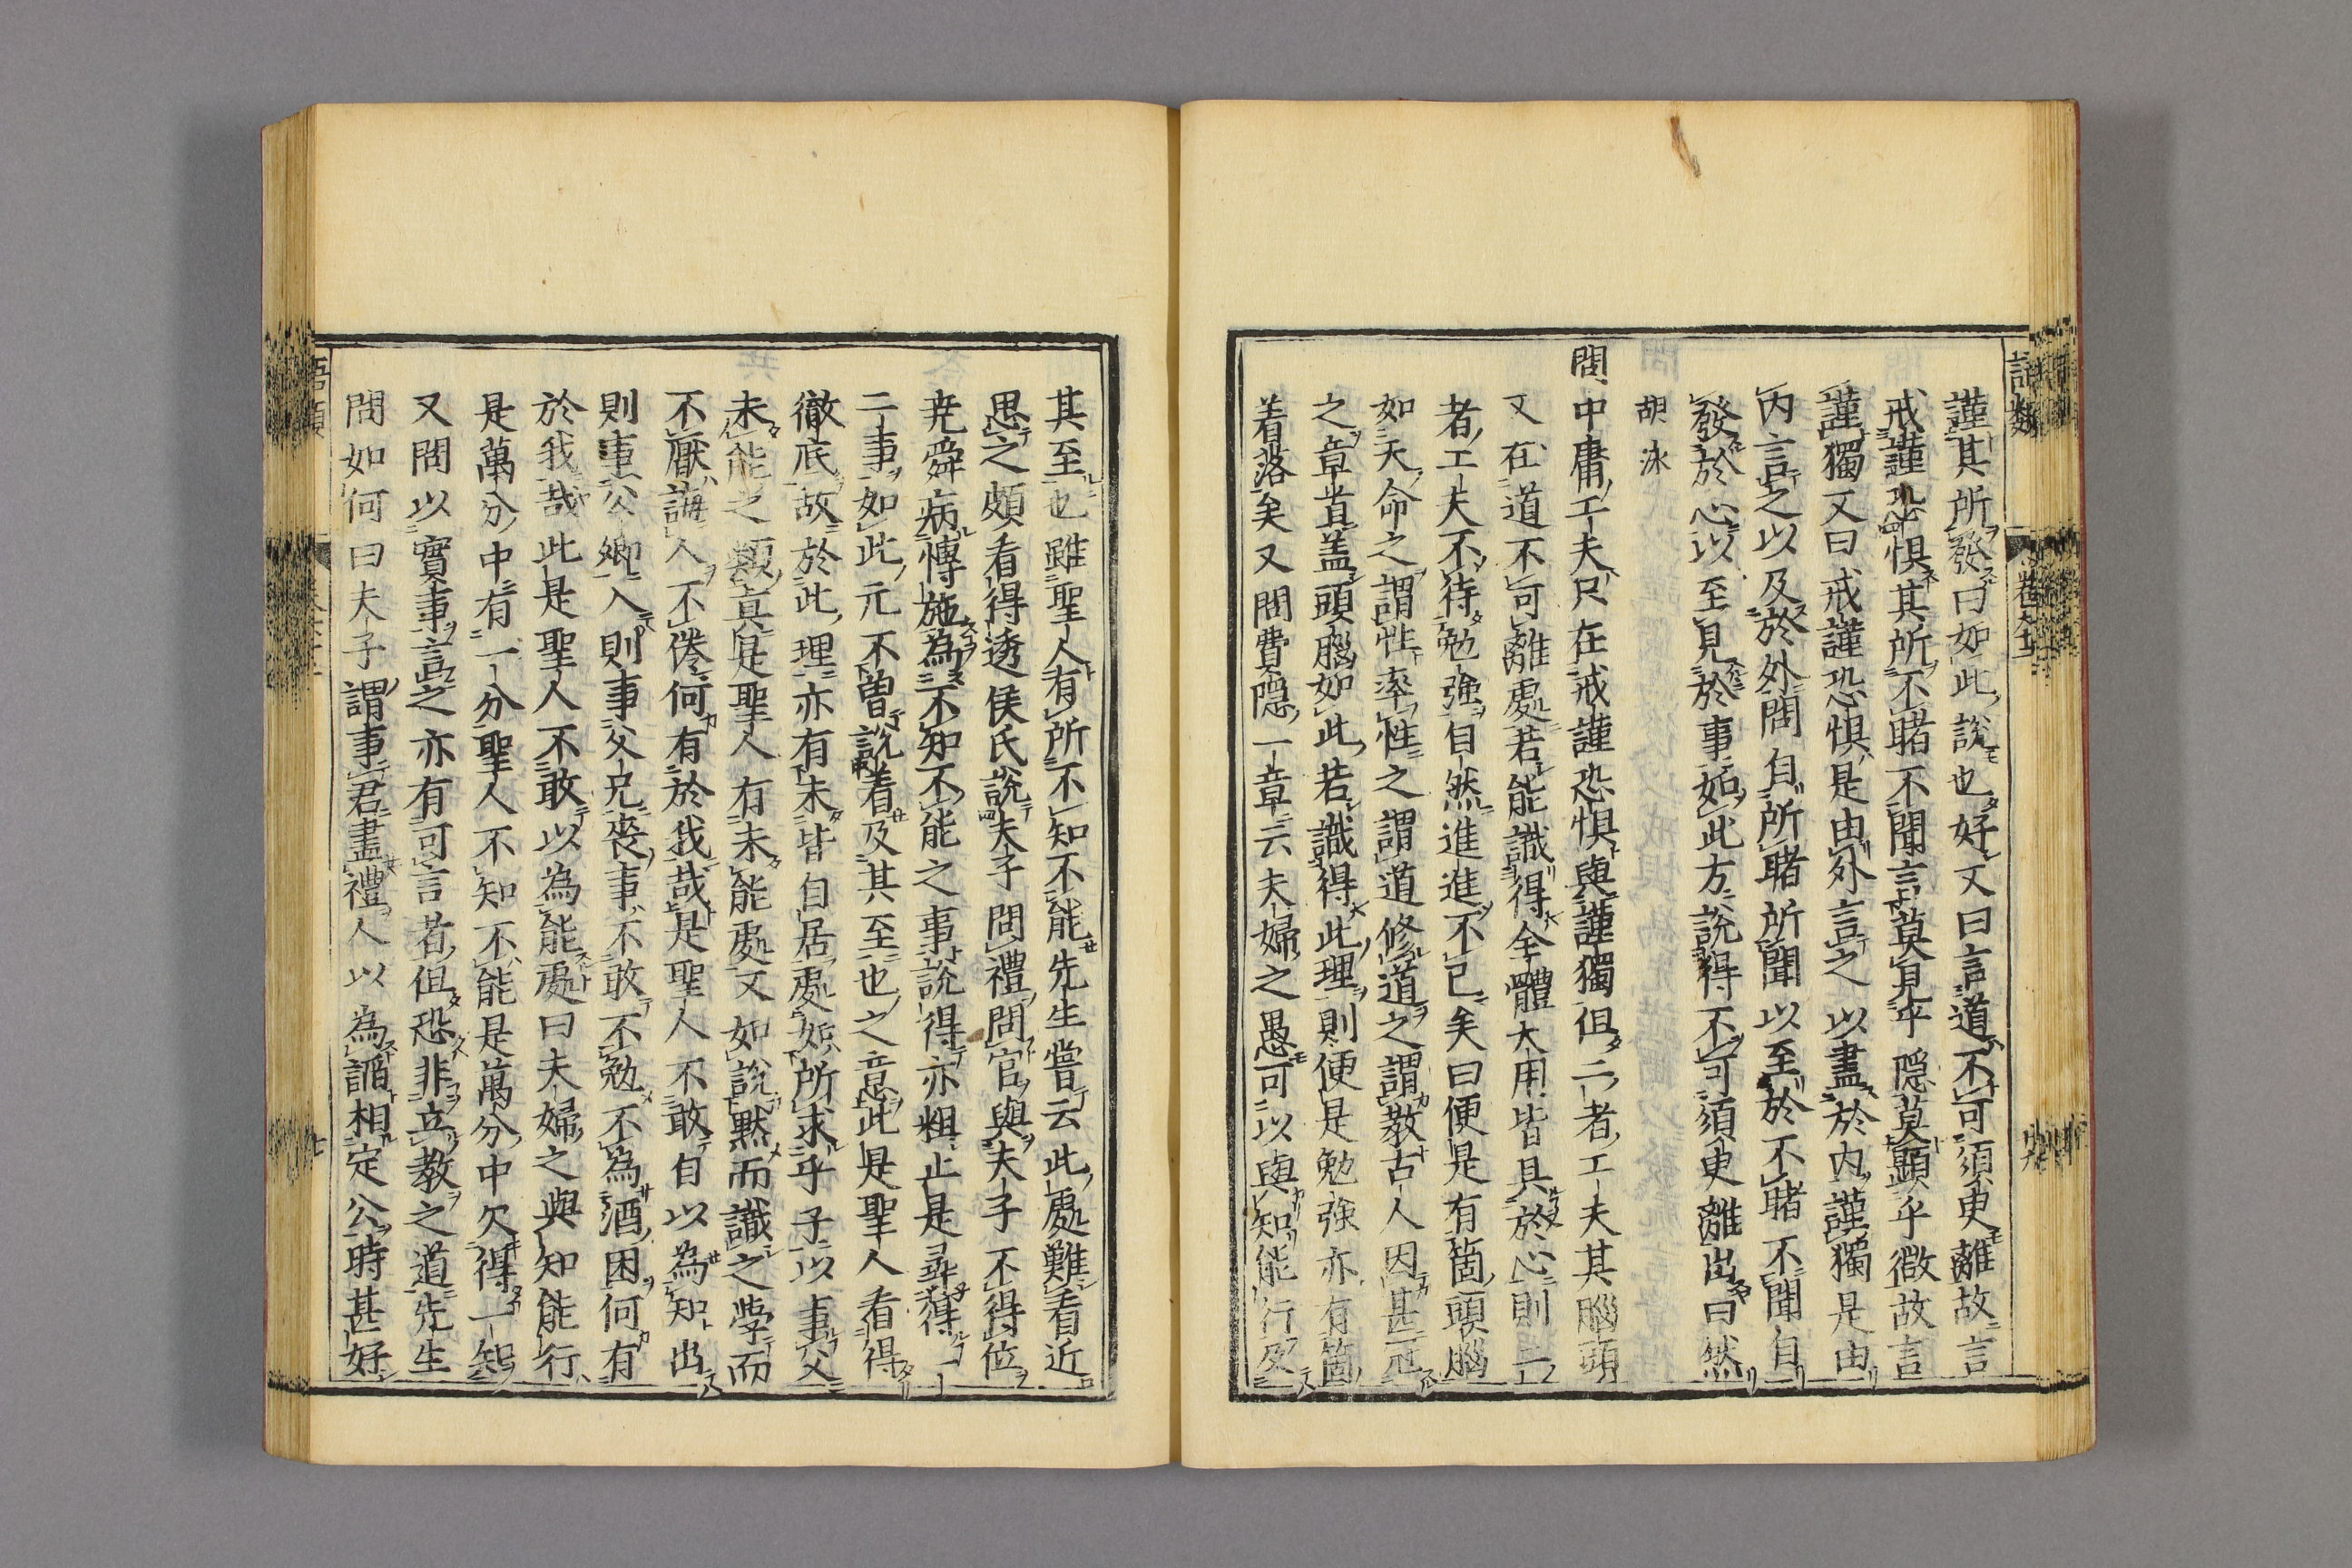 謹其所發曰如此說也好又曰言道不可須臾離故言
戒謹恐懼其所不睹不聞言莫見乎隱莫顯乎微故言
謹獨又曰戒謹恐懼是由外言之以盡於內謹獨是由
內言之以及於外問自所睹所聞以至於不睹不聞自
發於心以至見於事如此方說得不可須臾離出曰然
胡泳
問中庸工夫只在戒謹恐懼與謹獨但二者工夫其腦頭
又在道不可離處若能識得全體大用皆具於心則二
者工夫不待勉強自然進進不已矣曰便是有箇頭腦
如天命之謂性率性之謂道修道之謂教古人因甚冠
之章首蓋頭腦如此若識得此理則便是勉強亦有箇
着落矣又問費隱一章云夫婦之愚可以與知能行及
其至也雖聖人有所不知不能先生嘗云此處難看近
思之頗看得透侯氏說夫子問禮問官與夫子不得位
尭舜病博施為不知不能之事說得亦粗止是尋得一
二事如此元不曽說着及其至也之意此是聖人看得
徹底故於此理亦有未皆自居處如所求乎子以事父
未能之類真是聖人有未能處又如說黙而識之學而
不厭誨人不倦何有於我哉是聖人不敢自以為知出
則事公卿入則事父兄喪事不敢不勉不為酒困何有
於我哉此是聖人不敢以為能處曰夫婦之與知能行
是萬分中有一分聖人不知不能是萬分中欠得一分
又問以實事言之亦有可言者但恐非立教之道先生
問如何曰夫子謂事君盡禮人以為諂相定公時甚好